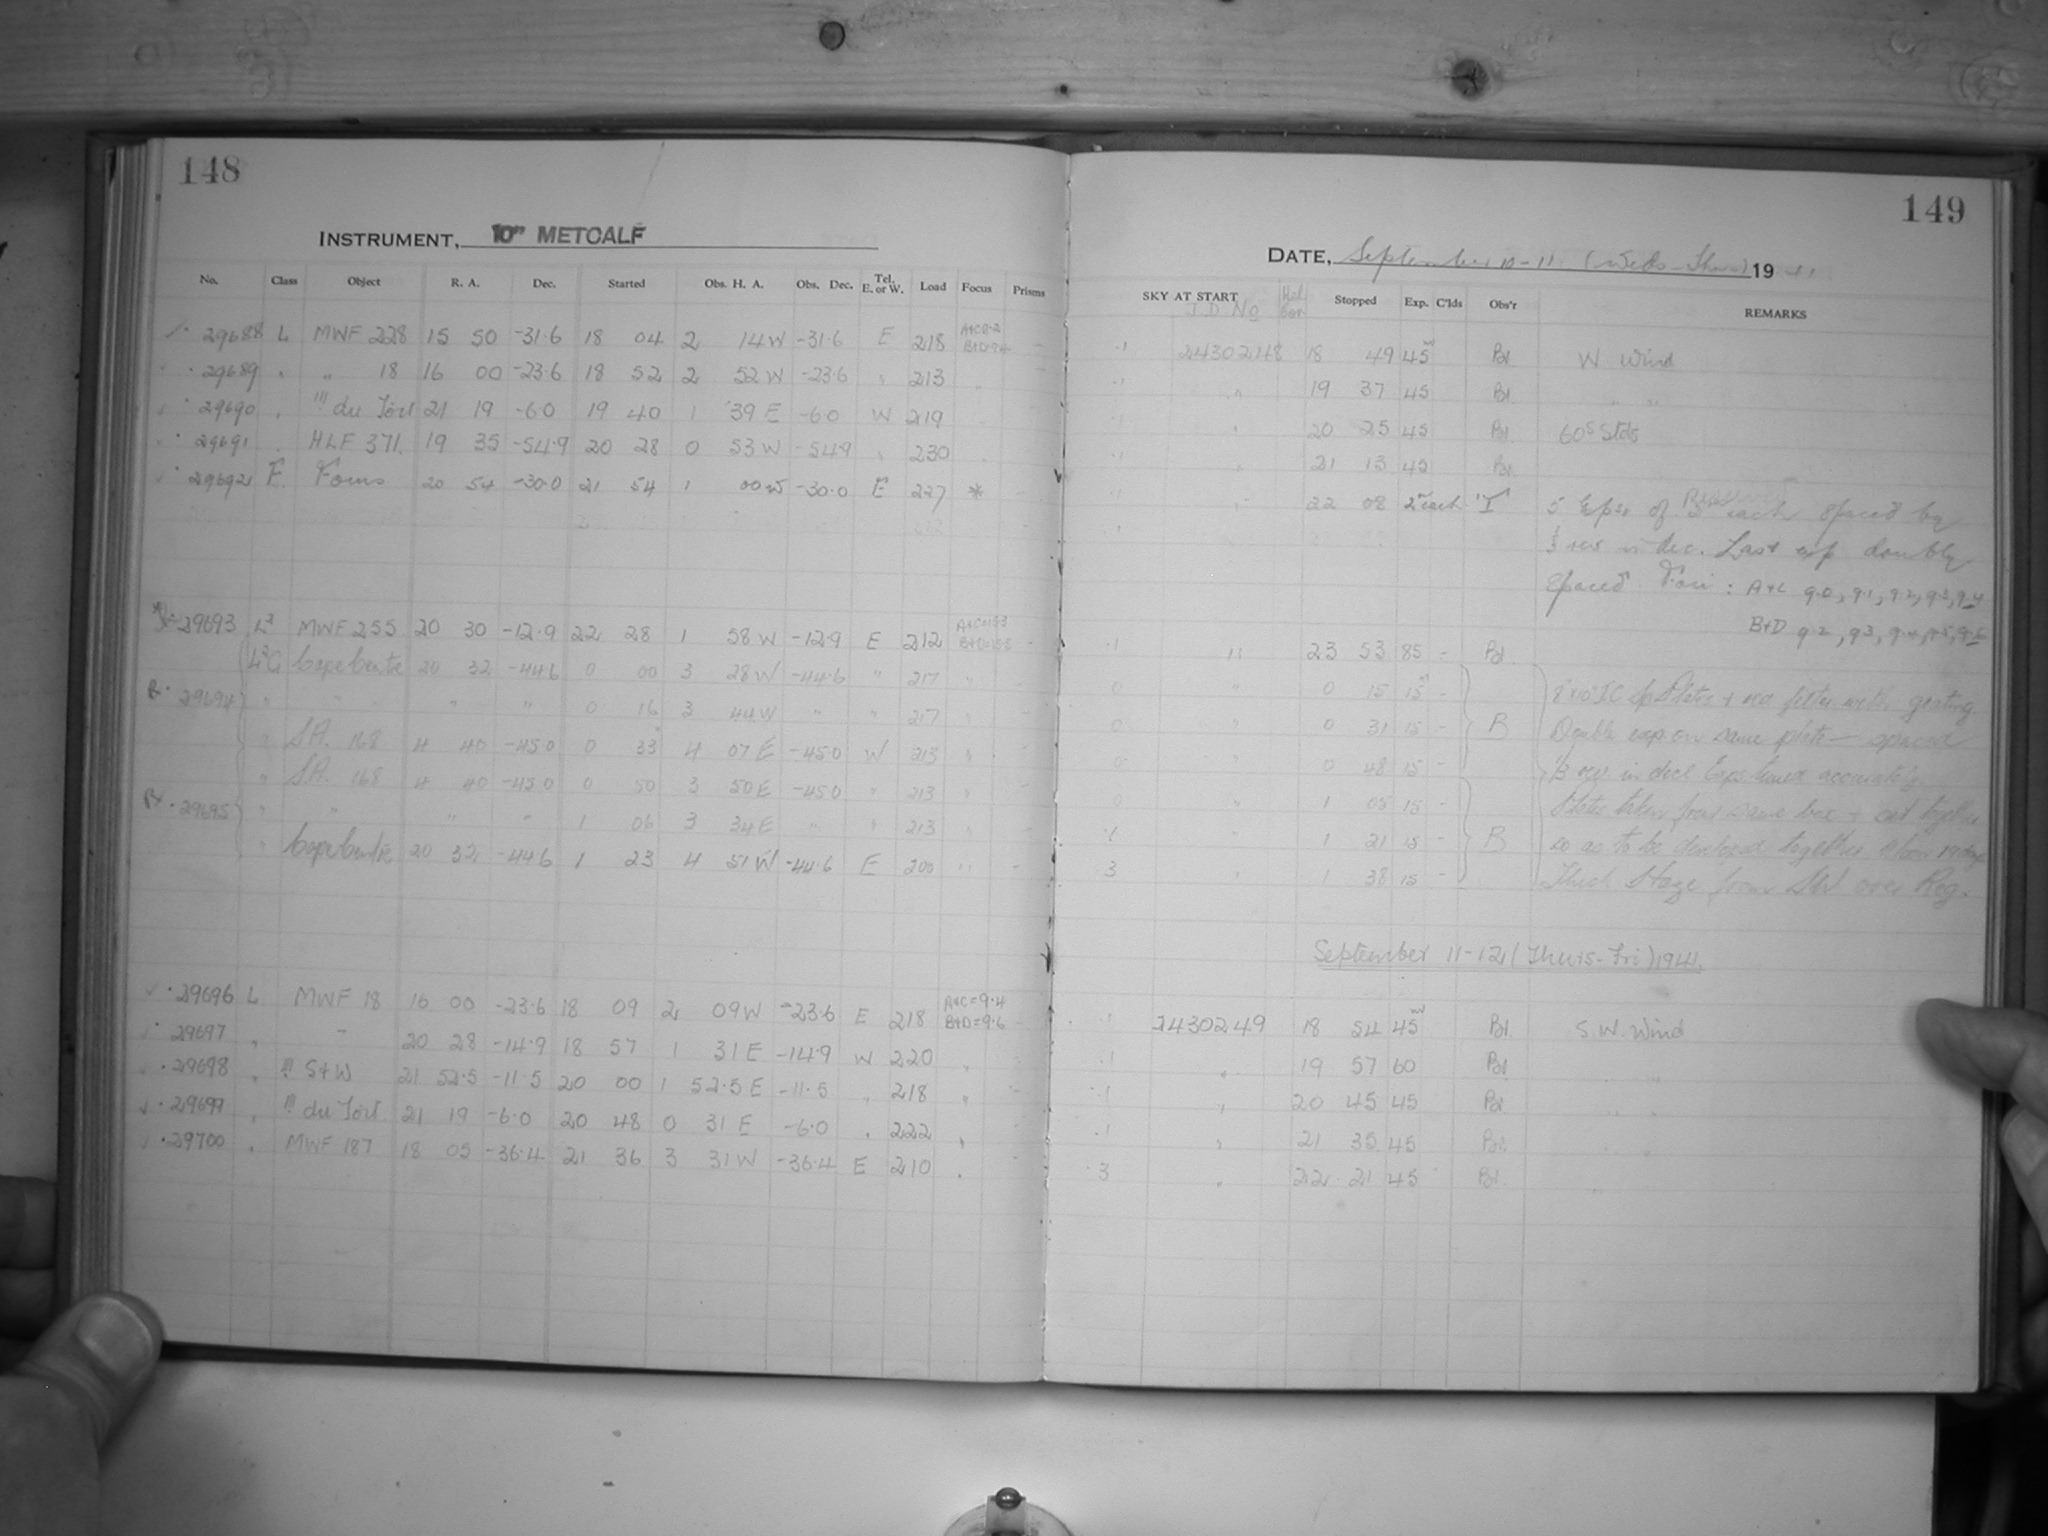 148
INSTRUMENT, 10" METCALF
No. Class Object R. A. Dec. Started Obs. H. A. Obs. Dec. Tel. E. or W. Load Focus Prisms
29688 L MWF 228 15 50 -31.6 18 04 2 14 W -31.6 E 218
29689 " " 18 16 00 -23.6 18 52 2 52 W -23.6 " 213
29690 " !!! du Toit 21 19 -6.0 19 40 1 39 E -6.0 W 219
29691 HLF 371 19 35 -54.9 20 28 0 53 W -54.9 " 230
29692 F. Focus 20 54 -30.0 21 54 1 00 W -30.0 E 227 *
29693 MWF 255 20 30 -12.9 22 28 1 58 W -12.9 E 212
Cape Centre 20 32 -44.6 0 00 3 28 W -44.6 " 217 "
29694 " " " " 0 16 3 44 W " " 217 "
" S.A. 168 4 40 -45.0 0 33 4 07 E -45.0 W 213 "
" S.A. 168 4 40 -45.0 0 50 3 50 E -45.0 " 213 "
29695 " " " " 1 06 3 34 E " " 213 "
" Cape Centre 20 32 -44.6 1 23 4 51 W -44.6 E 200 "
29696 L MWF 18 16 00 -23.6 18 09 2 09 W -23.6 E 218 A+C=9.4 B+D=9.6
29697 " " 20 28 -14.9 18 57 1 31 E -14.9 W 220 "
29698 " !!! S+W 21 52.5 -11.5 20 00 1 52.5 E -11.5 " 218 "
29699 " !!! du Toit 21 19 -6.0 20 48 0 31 E -6.0 " 222 "
29700 " MWF 187 18 05 -36.4 21 36 3 31 W -36.4 E 210 "
149
DATE, September 10-11 (Weds-Thurs) 1941
SKY AT START J D No Stopped Exp. C'lds Obs'r REMARKS
.1 2430248 18 49 45m Bl. W Wind
.1 " 19 37 45 Bl. " "
.1 " 20 25 45 Bl 60s Stds
.1 " 21 13 45 Bl.
.1 " 22 08 2m each "I" 5 Exps of each spaced by
in dec. Last exp doubly
spaced Foci: A+C 9.0, 9.1, 9.2, 9.3, 9.4
B+D 9.2, 9.3, 9.4, 9.5, 9.6
.1 " 23 53 85 - Bl.
0 " 0 15 15m - 8x10 IC Sp Plates + red filter with grating
0 " 0 31 15 - B Double exp on same plate - spaced
0 " 0 48 15 - in decl Exps timed accurately
0 " 1 05 15 - Plates taken from same box + cut together
" 1 21 15 - B so as to be developed together
3 " 1 38 15 - Thick Haze from SW over Reg.
September 11-12 (Thurs-Fri) 1941.
.1 2430249 18 54 45m Bl. S.W. Wind
.1 " 19 57 60 Bl
.1 " 20 45 45 Bl. " "
.1 " 21 35 45 Bl. " "
.3 " 22 21 45 Bl. "